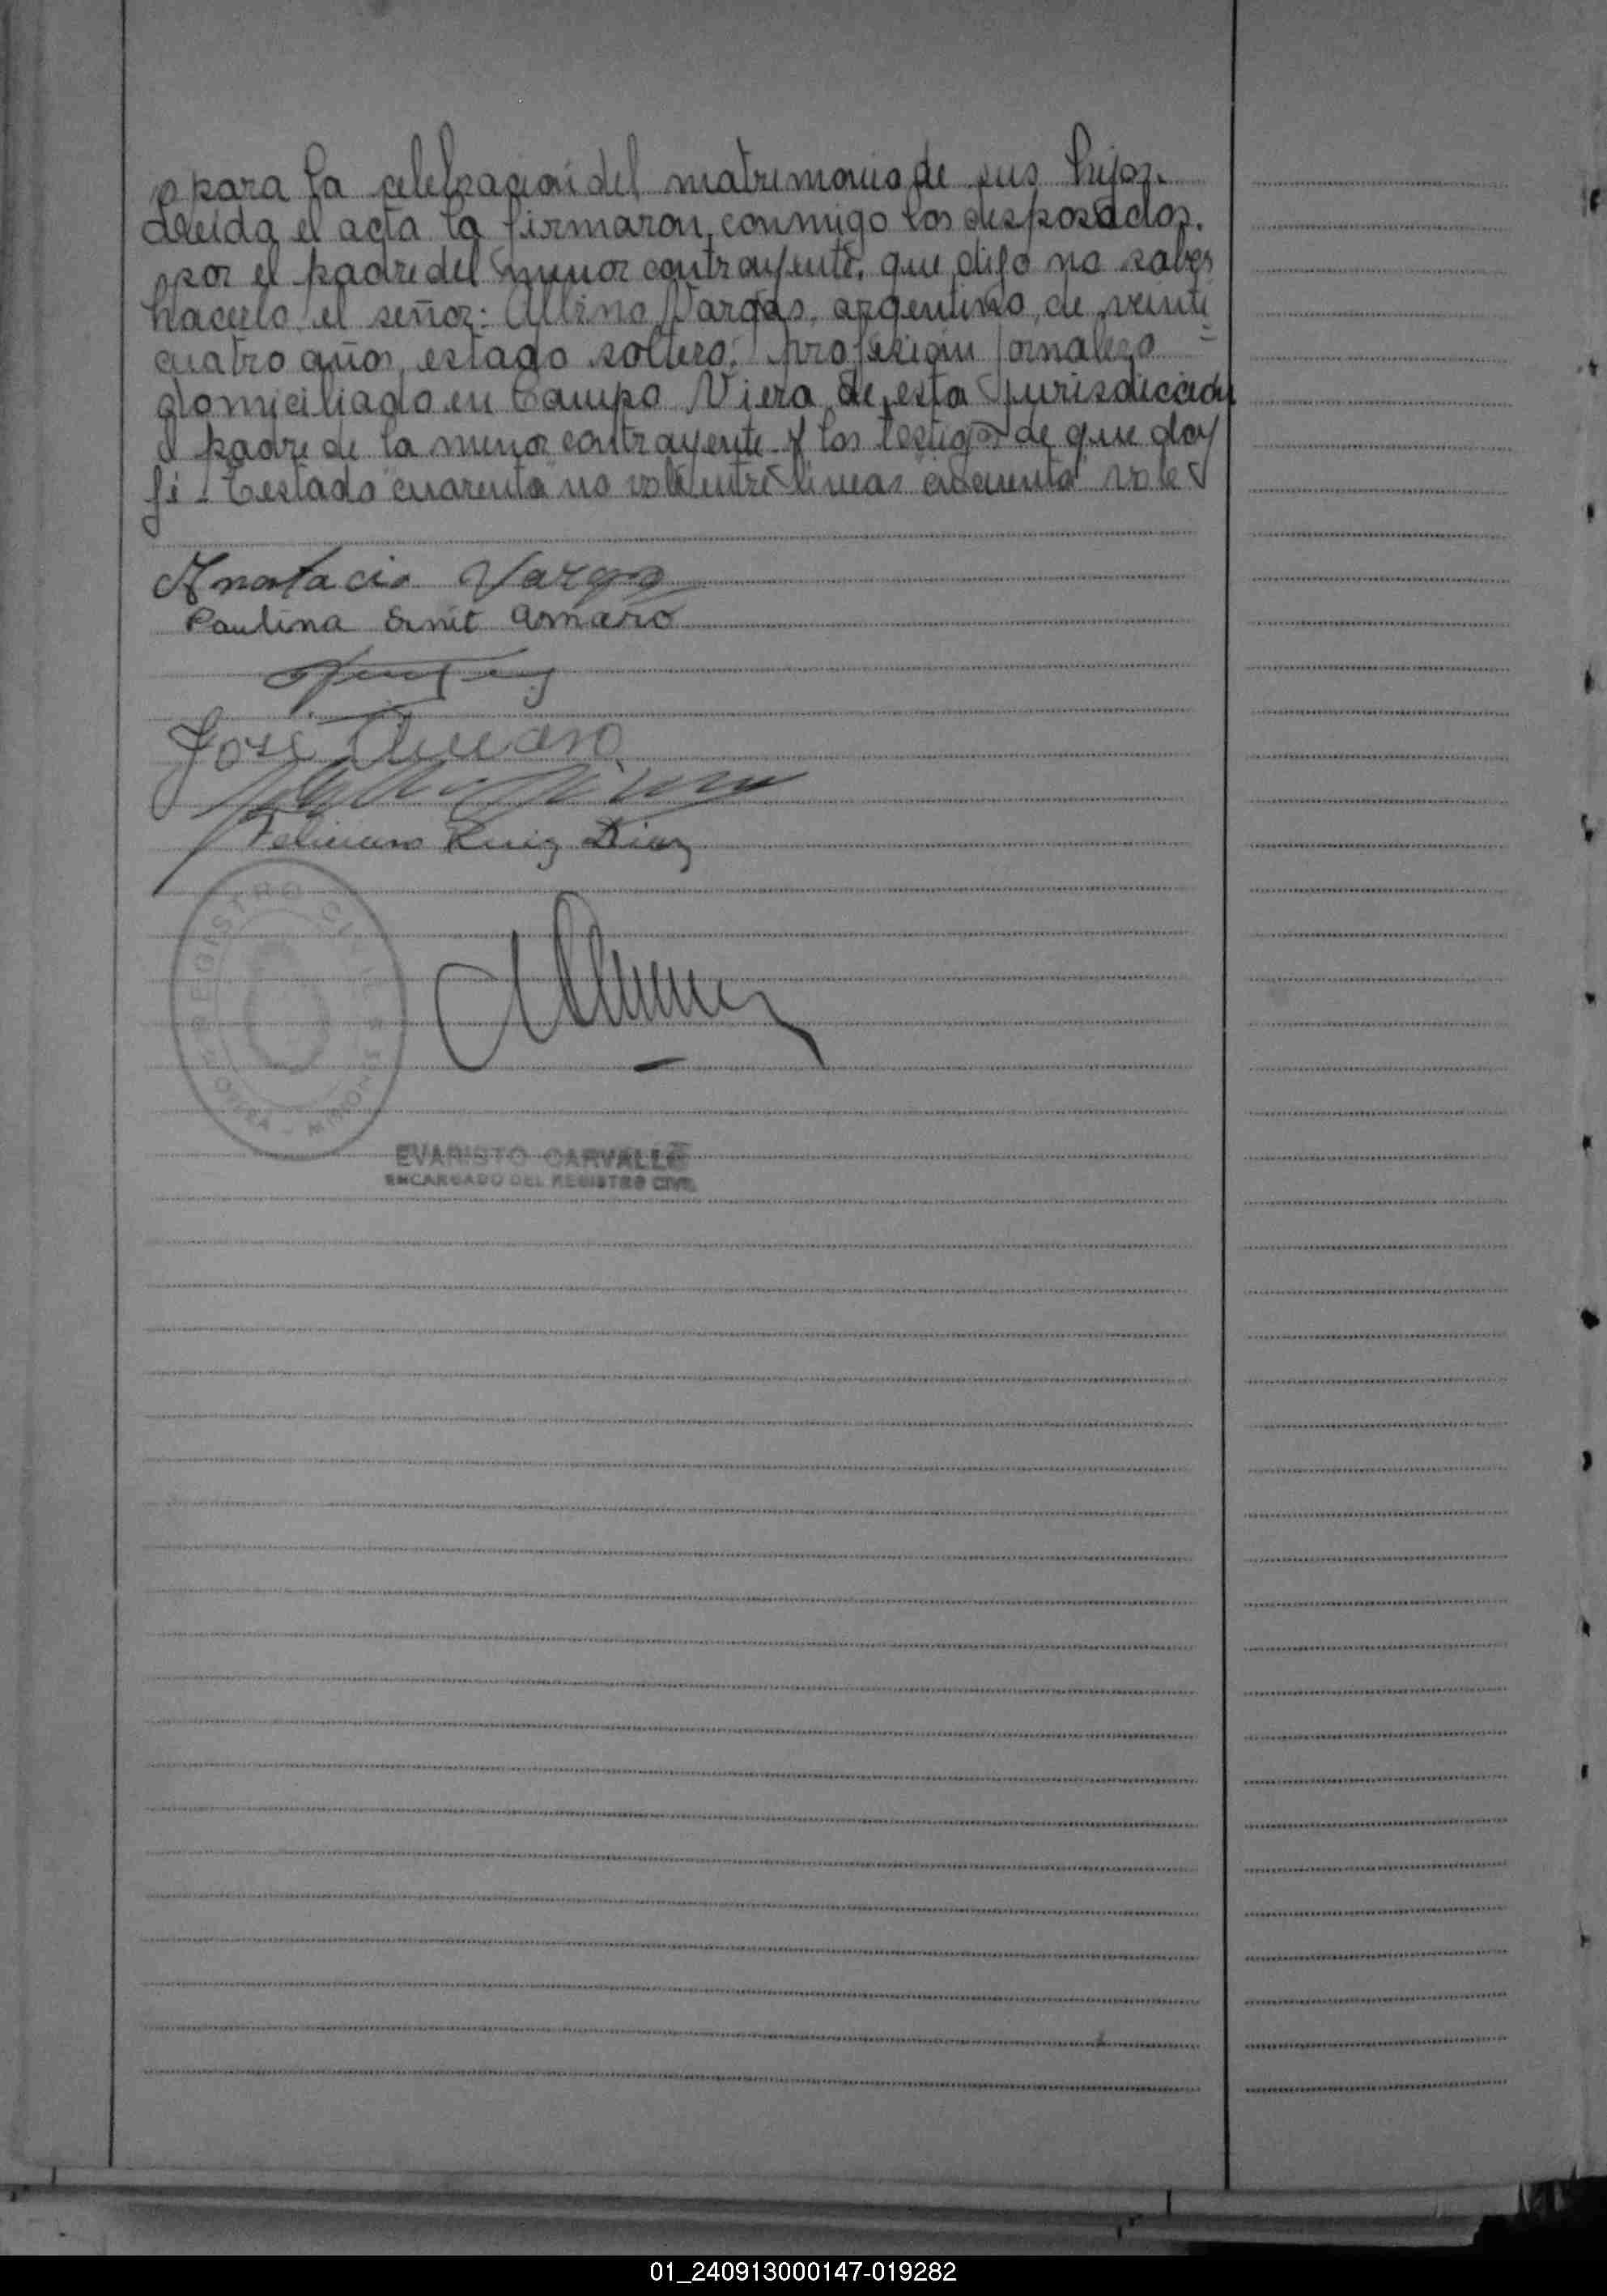 para la celebracion del matrimonio de sus hijos.
Leida el acta la firmaron conmigo los desposados.
por el padre del menor contrayente, que dijo no saber
hacerlo el señor: Albino Vargas, argentino, de veinti
cuatro años, estado soltero, profesion jornalero =
domiciliado en Campo Viera de esta jurisdiccion
el padre de la menor contrayente y los testigos de que doy
fé - Testado "cuarenta" no vale entre lineas vale
Anastacio Vargas
Paulina Ernit Amaro
José Amaro
Feliciano Ruiz Diaz
REGISTRO CIVIL
OBERA - MISIONES
EVARISTO CARVALLO
ENCARGADO DEL REGISTRO CIVIL
01_240913000147-019282